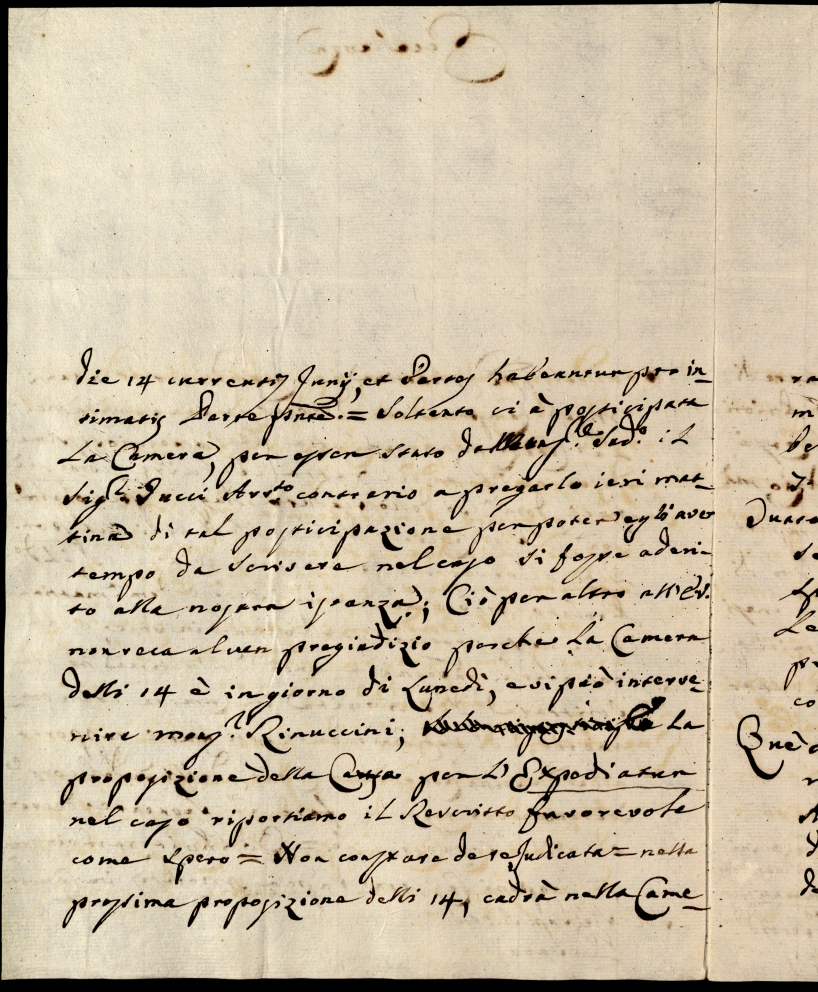 die 14 currentis Junij, et Partes habeantur pro in-
timatis Parte pnte. = Soltanto ci è posticipata
La Camera, per esser stato da Sud.o il
Sig.r Pucci contrario a pregarlo ieri mat-
tina di tal posticipazione per poter egli aver
tempo da scrivere nel caso si fosse aderi-
to alla nostra istanza; Ciò per altro all'
non reca alcun pregiudizio perche La Camera
delli 14 è in giorno di Lunedì, e vi può interve-
nire mons.r Rinuccini; La
proposizione della Causa per L'Expediatur
nel caso riportiamo il Rescritto favorevole
come spero = Non constare de re Judicata = nella
prossima proposizione delli 14, cadrà nella Came-
ra
m
be
Que